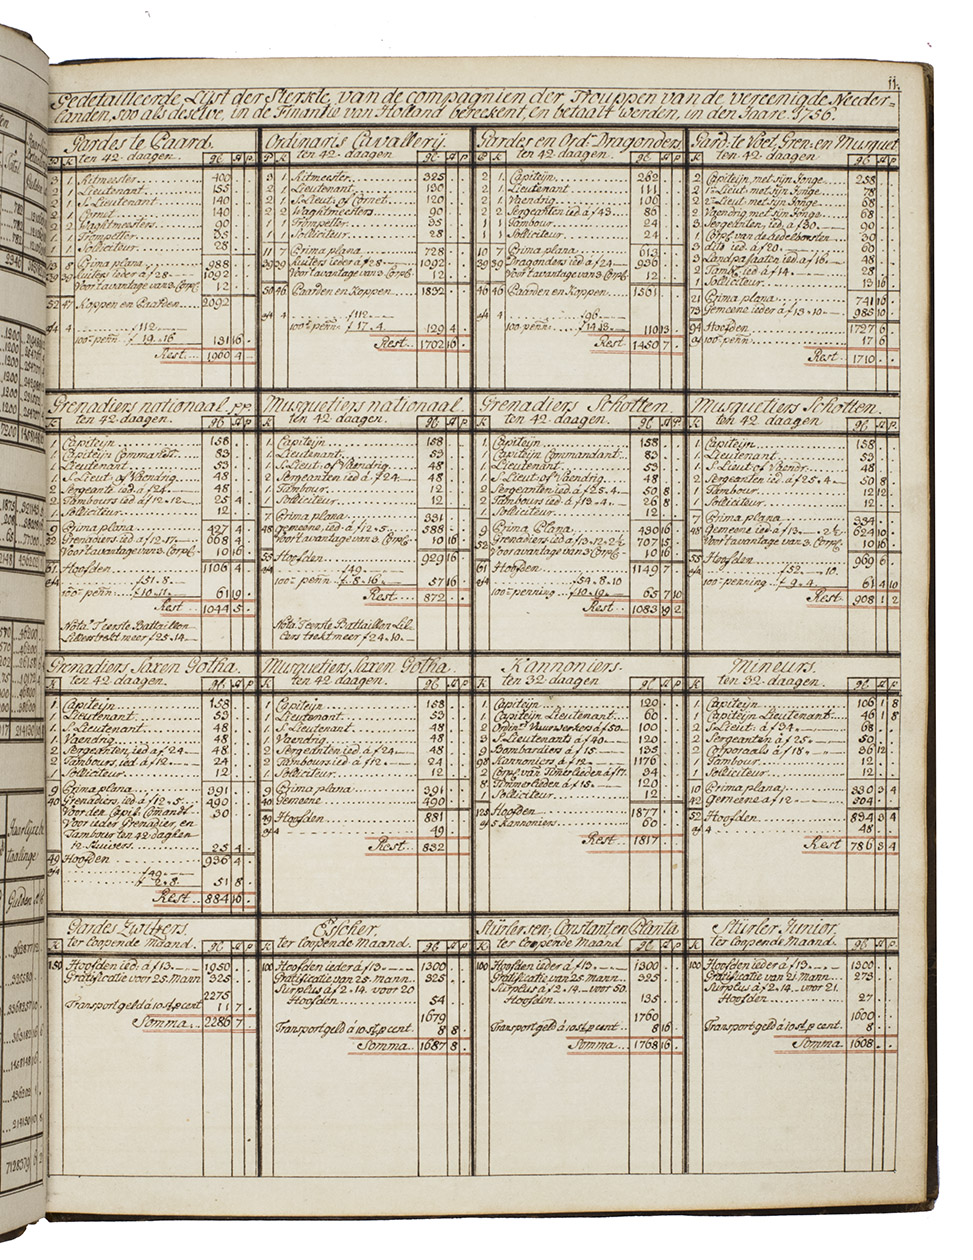 11.
Gedetailleerde Lyst der Sterkte, van de compagnien der Trouppen van de vereenigde Neder-
landen, soo als deselve, in de Finantie van Holland bereekent, en betaalt werden, in den Jaare 1756.
Gardes te Paard.
K ten 42 daagen. gl. st. p
3 1 Ritmeester 400
1 Lieutenant 155
1 S. Lieutenant 140
1 Cornet 140
2 Wagtmeesters 90
1 Trompetter 35
1 Solliciteur 28
8 Prima plana 988
39 Ruiters ieder a f 28 1092
Voor t avantage van 3 Corpl. 12
52 47 Koppen en Paarden 2092
4 f 112
100e penn. f 19.16 131 16
Rest 1960 4
Ordinaris Cavallerij.
P K ten 42 daagen. gl. st. p
3 1 Ritmeester 325
2 1 Lieutenant 130
2 1 S. Lieut. of Cornet 120
2 2 Wagtmeesters 90
1 1 Trompetter 35
1 1 Solliciteur 28
11 7 Prima plana 728
39 39 Ruiters ieder a f 28 1092
Voor t avantage van 3 Corpl. 12
50 46 Paarden en Koppen 1832
4 f 112
100e penn. f 17.4 129 4
Rest 1702 16
Gardes en Ord. Dragonders
P K ten 42 daagen. gl. st. p
2 1 Capiteijn 262
2 1 Lieutenant 111
2 1 Vaendrig 106
2 2 Sergeanten ied a f 43 86
1 1 Tambour 24
1 1 Solliciteur 24
10 7 Prima plana 613
39 39 Dragonders ied a f 24 936
Voor t avantage van 3 Corpl. 12
46 46 Paarden en Koppen 1561
4 f 96
100e penn. f 14.13 110 13
Rest 1450 7
Gard. te Voet, Gren. en Musquet
K ten 42 daagen gl. st. p
2 Capiteijn, met sijn Jonge 258
2 1e Lieut. met sijn Jonge 78
2 2e Lieut. met sijn Jonge 68
2 Vaendrig met sijn Jonge 68
3 Sergeanten, ied a f 30 90
1 Corpl. van de adelborsten 30
3 dito ied a f 20 60
3 Landspassaten ied a f 16 48
2 Tamb. ied a f 14 28
1 Solliciteur 13 16
21 Prima plana 741 16
73 Gemeene, ieder a f 13.10 985 10
94 Hoofden 1727 6
100e penn 17 6
Rest 1710
Grenadiers nationaal pp.
K ten 42 daagen. gl. st. p
1 Capiteijn 158
1 Capiteijn Commandt. 83
1 Lieutenant 53
1 S. Lieut. of Vaendrig 48
2 Sergeants ied a f 24 48
2 Tambours ied a f 12.12 25 4
1 Solliciteur 12
9 Prima plana 427 4
52 Grenadiers ied a f 12.17 668 4
Voor t avantage van 3 Corpl. 10 16
61 Hoofden 1106 4
f 51.8
100e penn. f 10.11 61 19
Rest 1044 5
Nota. T eerste Battaillon
Lil. vertrekt meer f 25.14
Musquetiers nationaal.
K ten 42 daagen. gl. st. p
1 Capiteijn 158
1 Lieutenant 53
1 S. Lieut. of Vaendrig 48
2 Sergeanten ied a f 24 48
1 Tambour 12
1 Solliciteur 12
7 Prima plana 331
48 Gemeene, ied a f 12.5 588
Voor t avantage van 3 Corpl. 10 16
55 Hoofden 929 16
f 49
100e penn f 8.16 57 16
Rest 872
Nota T eerste Battaillon Lil
Grenadiers Schotten.
K ten 42 daagen gl. st. p
1 Capiteijn 158
1 Capiteijn Commandant 83
1 Lieutenant 53
1 S. Lieut of Vaendrig 48
2 Sergeanten ied a f 25.4 50 8
2 Tambours ied a f 13.4 26 8
1 Solliciteur 12
9 Prima Plana 430 16
52 Grenadiers ied a f 13.12.2½ 707 15
Voor avantage van 3 Corpl. 10 16
61 Hoofden 1149 7
f 54.8.10
100e penning f 10.19 65 7 10
Rest 1083 19 2
Musquetiers Schotten.
K ten 42 daagen gl. st. p
1 Capiteijn 158
1 Lieutenant 53
1 S. Lieut of Vaendr. 48
2 Sergeanten ied a f 25.4 50 8
1 Tambour 12 12
1 Solliciteur 12
7 Prima plana 334
48 Gemeene ied a f 13 2½ 624 10
Voor t avantage van 3 Corpl. 10 16
55 Hoofden 969 6
f 52 10
100e penning f 9.4 61 4 10
Rest 908 1 2
Grenadiers Saxen Gotha.
K ten 42 daagen. gl. st. p
1 Capiteijn 158
1 Lieutenant 53
1 S. Lieutenant 48
1 Vaendrig 48
2 Sergeanten, ied a f 24 48
2 Tambours, ied a f 12 24
1 Solliciteur 12
9 Prima plana 391
40 Grenadiers, ied a f 12.5 490
Voor den Capit. Comandt 30
Voor ieder Grenadier, en
Tambour ten 42 daagen
12 stuivers 25 4
49 Hoofden 936 4
f 49
f 2.8 51 8
Rest 884 16
Musquetiers Saxen Gotha.
K ten 42 daagen. gl. st. p
1 Capiteijn 158
1 Lieutenant 53
1 S. Lieutenant 48
1 Vaendrig 48
2 Sergeanten ied a f 24 48
2 Tambours ied a f 12 24
1 Solliciteur 12
9 Prima plana 391
40 Gemeene 490
49 Hoofden 881
4 49
Rest 832
Kannoniers.
K ten 32 daagen gl. st. p
1 Capiteijn 120
1 Capiteijn Lieutenant 60
2 Ordin. Vuurwerkers a f 50 100
3 S. Lieutenants a f 40 120
9 Bombardiers a f 15 135
98 Kannoniers a f 12 1176
2 Corpl. van Timerlieden a f 17 34
8 Timmerlieden a f 15 120
1 Solliciteur 12
125 Hoofden 1877
5 Kannoniers 60
Rest 1817
Mineurs.
K ten 32 daagen. gl. st. p
1 Capiteijn 106 1 8
1 Capiteijn Lieutenant 46 1 8
2 S. Lieut. a f 34 68
2 Sergeanten a f 25 50
2 Corporaals a f 18 36 12
1 Tambour 12
1 Solliciteur 12
10 Prima plana 330 3 4
42 Gemeene a f 12 504
52 Hoofden 834 3 4
4 48
Rest 786 3 4
Gardes Zwitsers.
K ter loopende Maand. gl. st. p
150 Hoofden ied: a f 13 1950
Gratificatie voor 25 Mann 325
2275
Transportgeld a 10 st. p cent 11 7
Somma 2286 7
Escher.
K ter loopende Maand. gl. st. p
100 Hoofden ieder a f 13 1300
Gratificatie van 25 mann 325
Surplus a f 2.14 voor 20
Hoofden 54
1679
Transportgeld a 10 st. p cent. 8 8
Somma 1687 8
Stürler, en Constant en Planta
K ter loopende Maand gl. st. p
100 Hoofden ieder a f 13 1300
Gratificatie van 25 mann 325
Surplus a f 2.14 voor 50
Hoofden 135
1760
Transportgeld a 10 st. p cent 8 16
Somma 1768 16
Stürler Junior.
K ter loopende Maand. gl. st. p
100 Hoofden ieder a f 13 1300
Gratificatie van 21 mann 273
Surplus a f 2.14 voor 21
Hoofden 27
1600
Transportgeld a 10 st. p cent. 8
Somma 1608